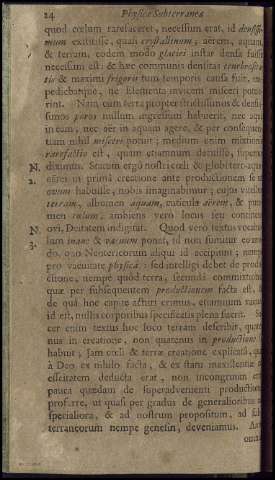 24 Physicæ Subterraneæ
quod cœlum rarefaceret, necessum erat, id densis-
mum extitisse, quasi crystallinum; aërem, aquam,
& terram, eodem modo glaciei instar densa fuisse
necessum est: & hæc communis densitas tenebrosita-
tis & maximi frigoris tum temporis causa fuit, im-
pediebatque, ne Elementa invicem misceri potue-
rint. Nam cum terra propter strictissimos & densis-
simos poros nullum ingressum habuerit, nec aqua
in eam, nec aër in aquam agere, & per consequen-
tiam nihil misceri potuit; medium enim mixtionis
rarefactio est, quam etiamnum defuisse, supra
N. diximus. Statum ergo nostri cœli & globi terraquei
2. esse in prima creatione ante productionem se ut
ovum habuisse, nobis imaginabimur; cujus vitellus
terram, albumen aquam, cuticula aërem, & puta-
men cœlum, ambiens vero locus seu continens
N. ovi, Deitatem indigitat. Quod vero textus vocabu-
3. lum inane & vacuum ponat, id non sumitur eo mo-
do, quo Neotericorum aliqui id accipiunt; nempe
pro vacuitate physica; sed intelligi debet de produ-
ctione, nempe quod terra, secundâ commistatione
quæ per subsequentem productionem facta est,
de quâ hoc capite acturi erimus, etiamnum vacua
id est, nullis corporibus specificatis plena fuerit. Si-
cer enim textus hoc loco terram describit, qua-
nus in creatione, non quatenus in productione
habuit; Jam cœli & terræ creatione explicatâ, quæ
à Deo ex nihilo facta, & ex statu inexistentiæ
essentiam deducta erat, non incongruum erit
pauca quædam de superadvenienti productione
proferre, ut quasi per gradus de generalioribus ad
specialiora, & ad nostrum propositum, ad sub-
terraneorum nempe genesin, deveniamus.